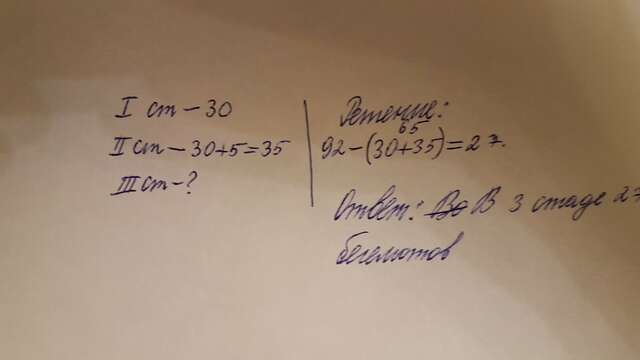 I ст – 30
II ст – 30+5=35
III ст – ?
Решение:
65
92–(30+35)=27.
Ответ: Во В 3 стаде 27
бегемотов